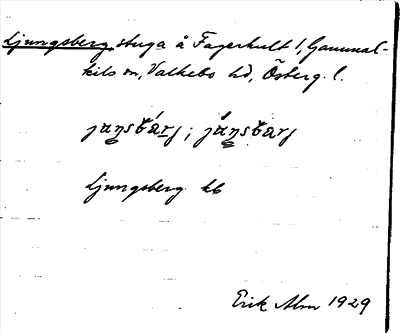 Ljungsberg, stuga å Fagerhult 1, Gammal-
kils sn, Valkebo hd, Österg. l.
Ljungsberg kb
Erik Alm 1929